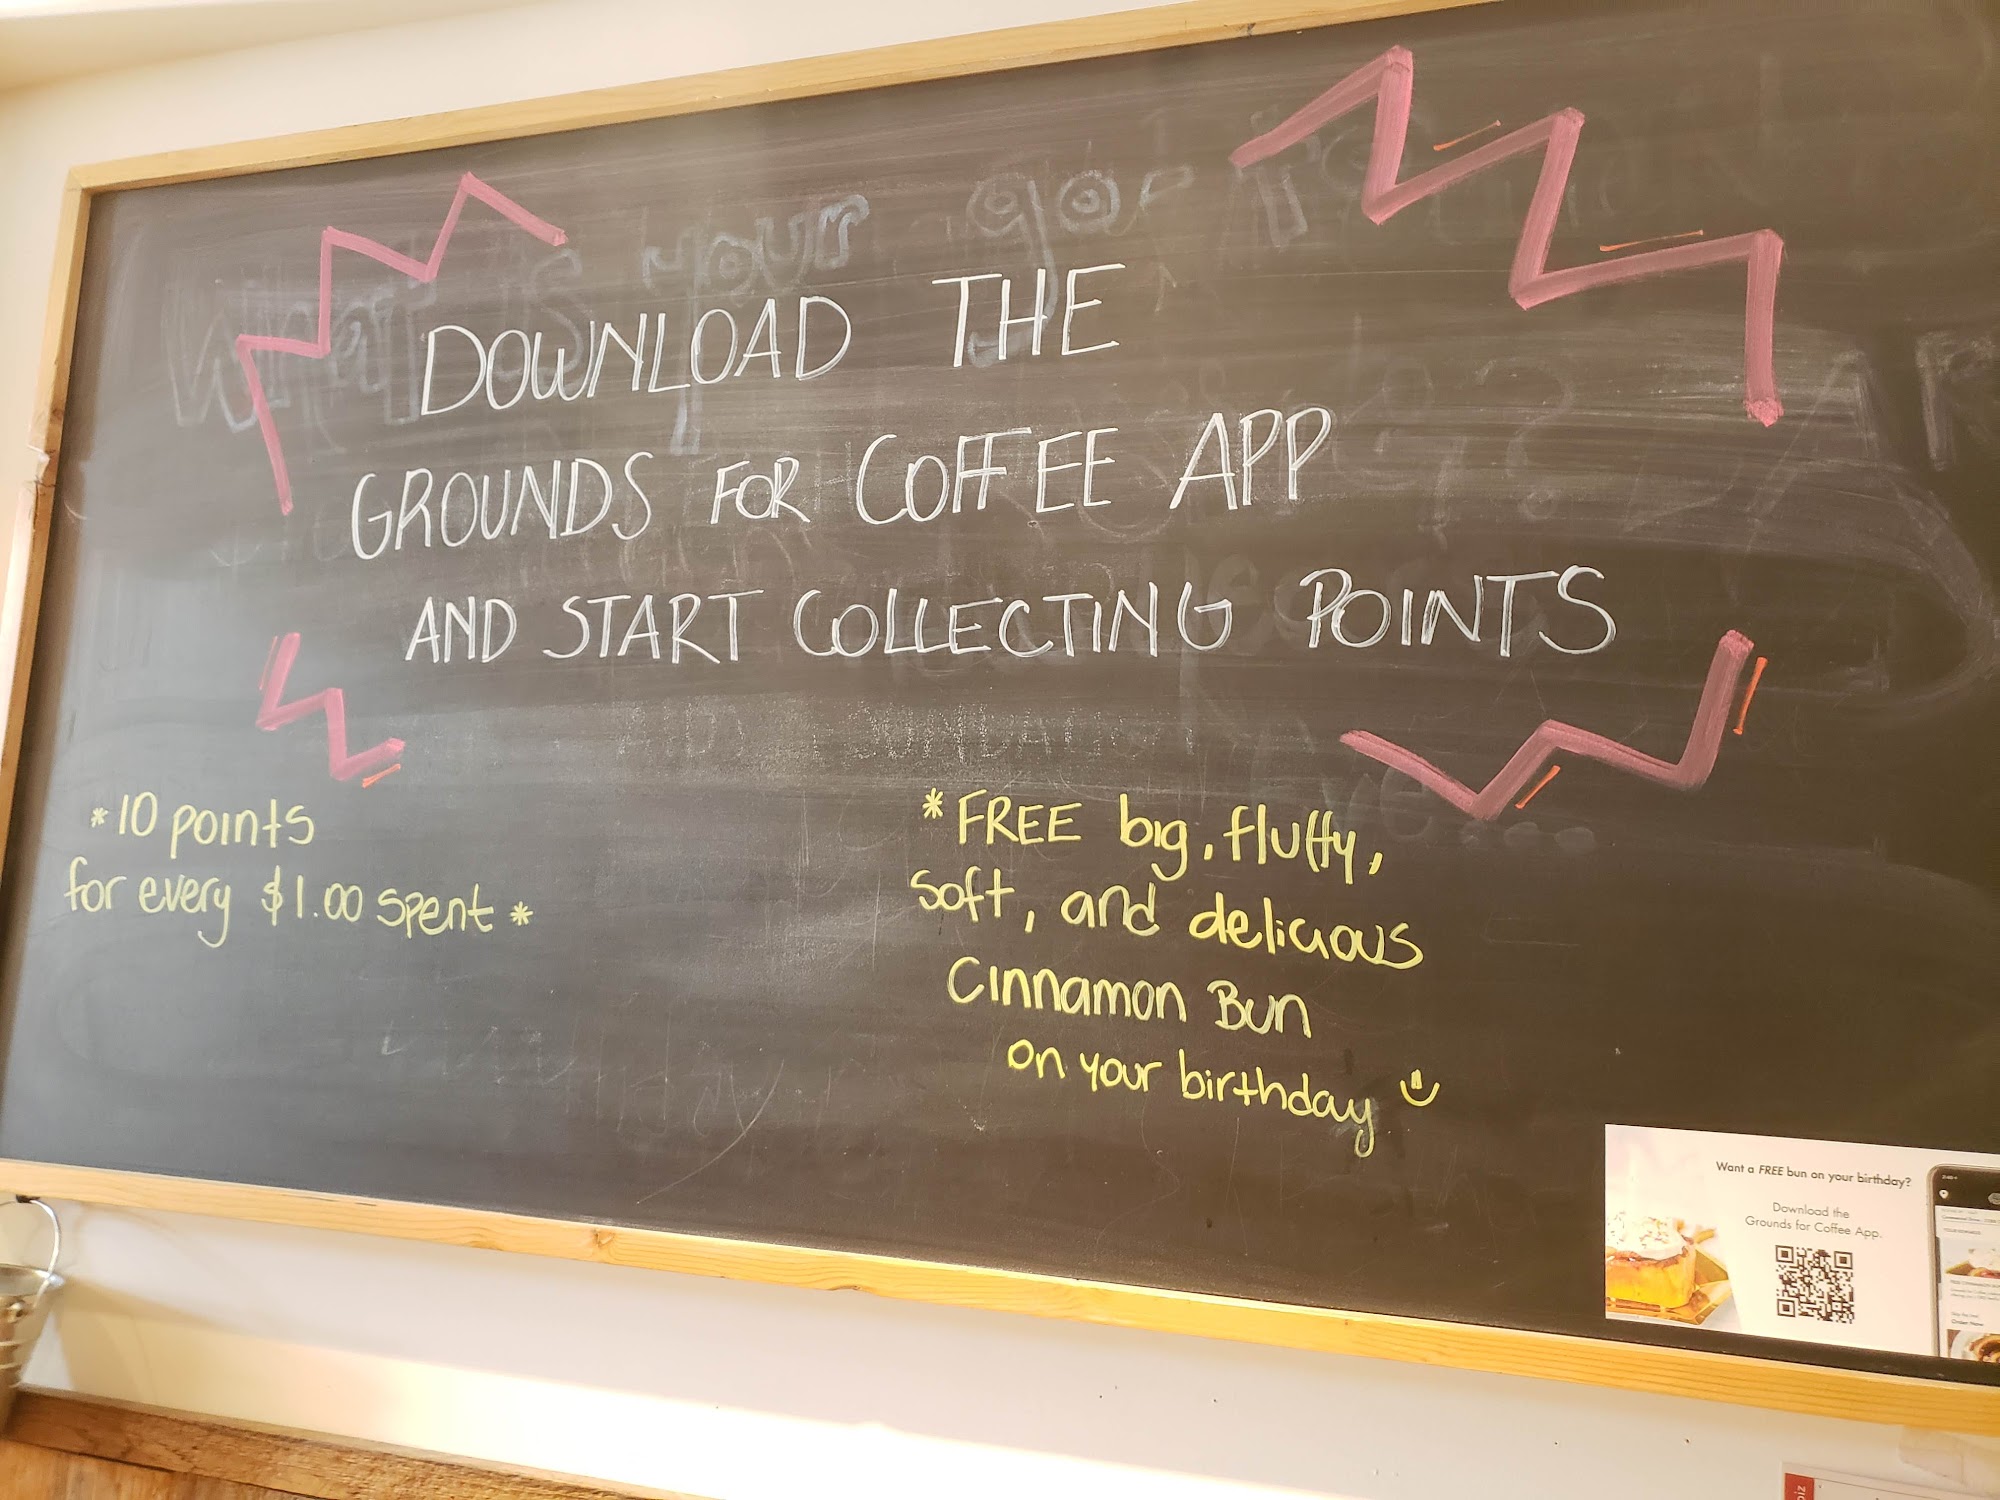 What is your go to
DOWNLOAD THE
GROUNDS FOR COFFEE APP
AND START COLLECTING POINTS
*10 points
for every $1.00 spent*
*FREE big, fluffy,
soft, and delicious
Cinnamon Bun
on your birthday
Want a FREE bun on your birthday?
Download the
Grounds for Coffee App.
Order Now